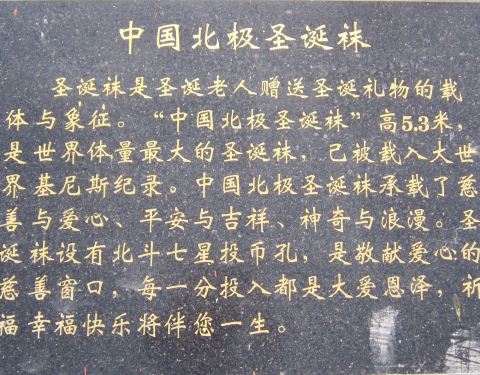 中国北极圣诞袜
圣诞袜是圣诞老人赠送圣诞礼物的载
体与象征。“中国北极圣诞袜”高5.3米，
是世界体量最大的圣诞袜，已被载入大世
界基尼斯纪录。中国北极圣诞袜承载了慈
善与爱心、平安与吉祥、神奇与浪漫。圣
诞袜设有北斗七星投币孔，是敬献爱心的
慈善窗口，每一分投入都是大爱恩泽，祈
福幸福快乐将伴您一生。